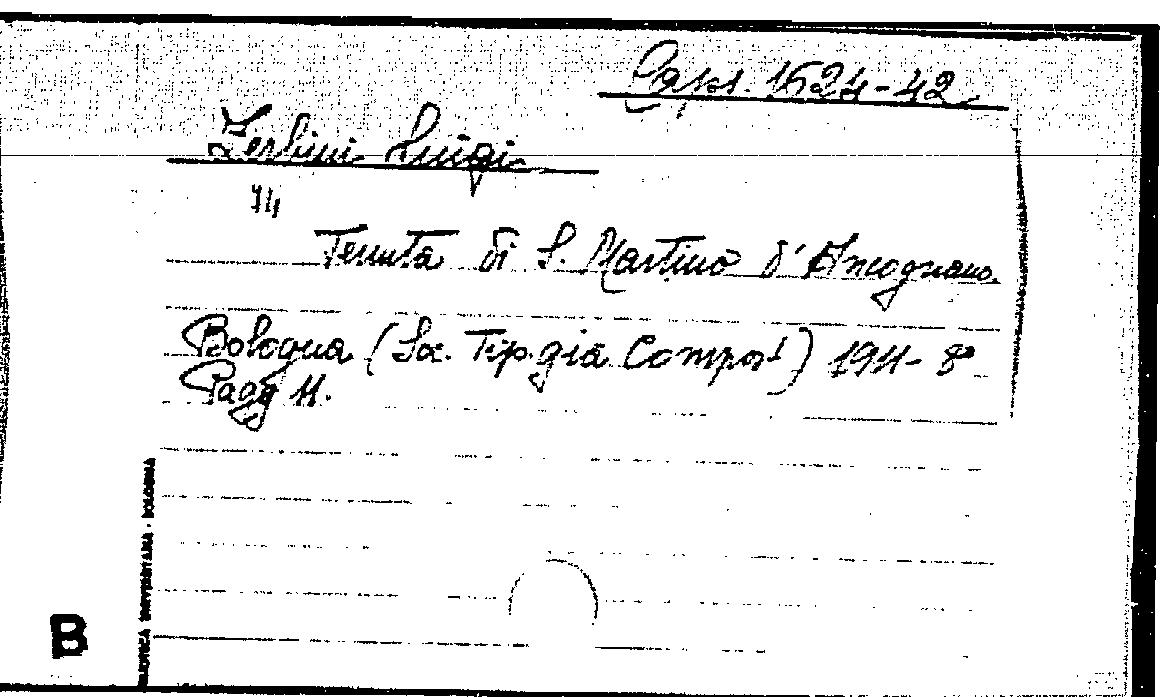 Caps. 1524-42
Zerbini Luigi
74
Tenuta di S. Martino d'Ancognano.
Bologna (Soc. Tip.gia Compos!) 1911 - 8º
Pagg 11.
BIBLIOTECA UNIVERSITARIA - BOLOGNA
B